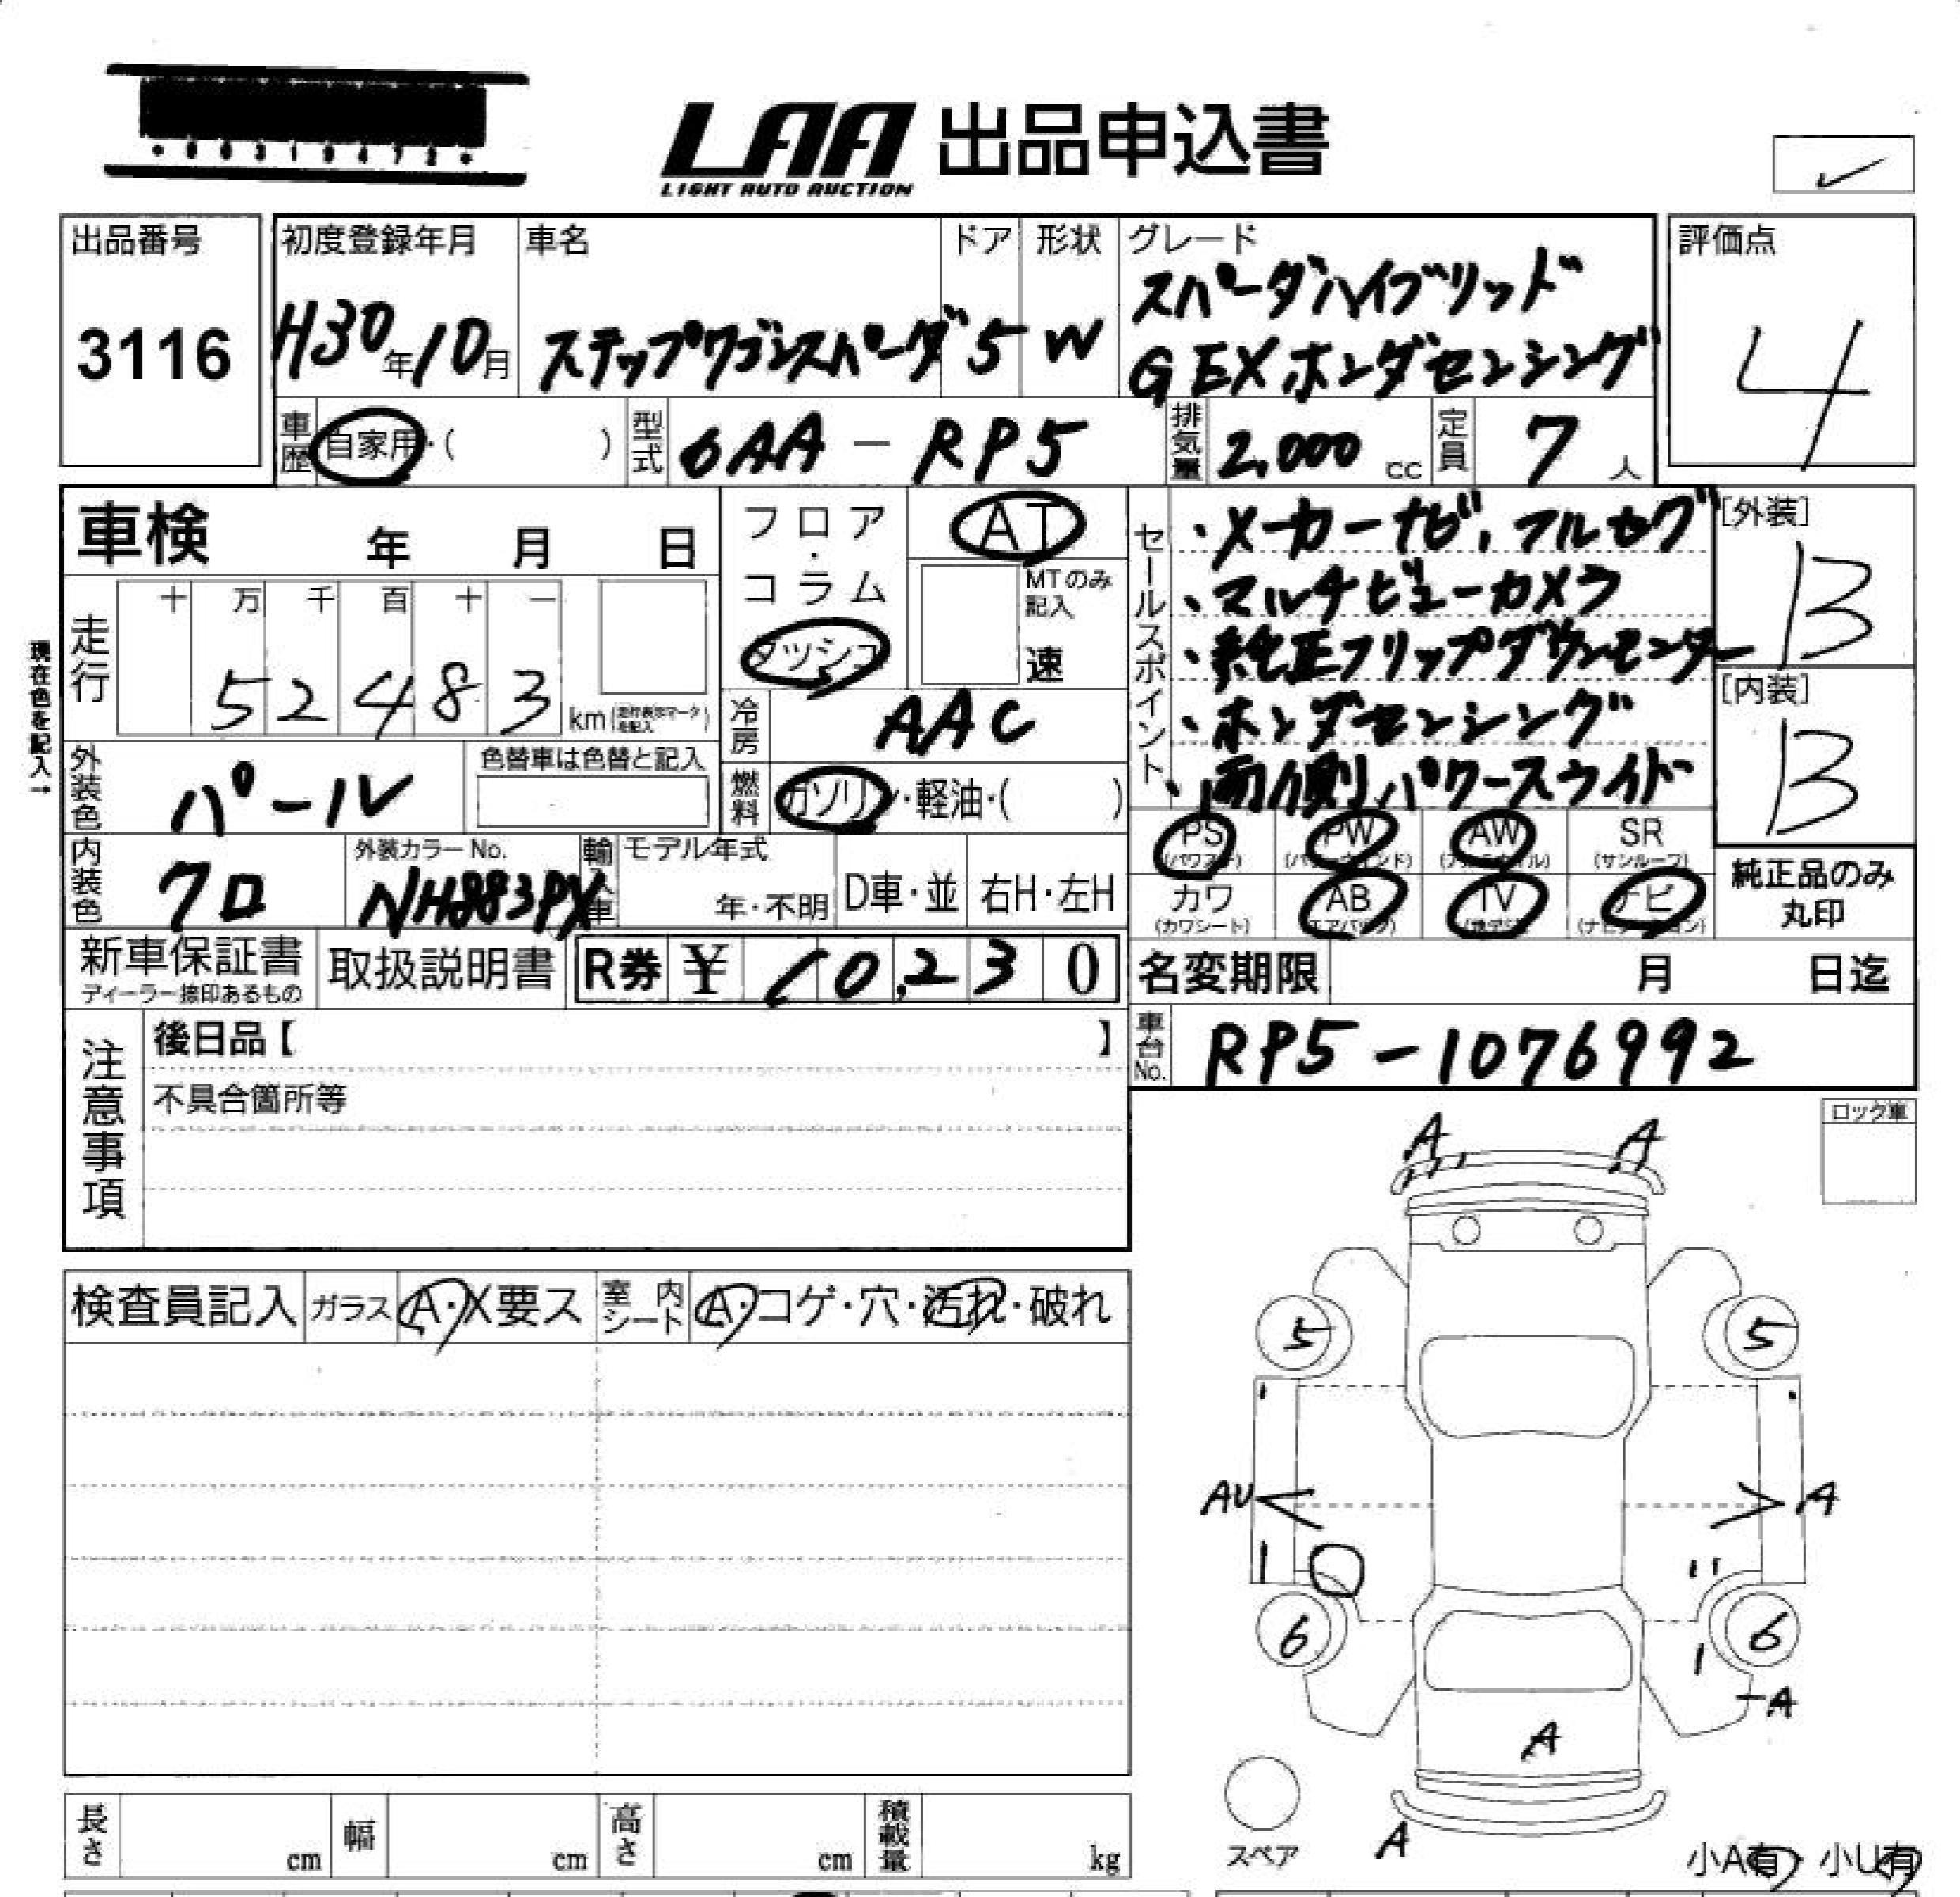 *00310472*
LAA 出品申込書
LIGHT AUTO AUCTION
出品番号
3116
初度登録年月
H30年10月
車名
ステップワゴンスパーダ
ドア
5
形状
W
グレード
スパーダハイブリッド
G EX ホンダセンシング
評価点
4
車歴
自家用・( )
型式
6AA - RP5
排気量
2,000 cc
定員
7 人
車検 年 月 日
フロア・コラム
ダッシュ
AT
MTのみ記入
速
セールスポイント
・メーカーナビ, フルセグ
・マルチビューカメラ
・純正フリップダウンモニター
・ホンダセンシング
・両側パワースライド
[外装]
B
[内装]
B
現在色を記入→
走行
十 万 千 百 十 一
5 2 4 8 3 km
冷房
AAC
外装色
パール
色替車は色替と記入
燃料
ガソリン・軽油・( )
PS
(パワステ)
PW
(パワーウインド)
AW
(アルミホイル)
SR
(サンルーフ)
内装色
クロ
外装カラーNo.
NH883PX
輸入車
モデル年式
年・不明
D車・並
右H・左H
カワ
(カワシート)
AB
(エアバッグ)
TV
(地デジ)
ナビ
(ナビゲーション)
純正品のみ
丸印
新車保証書
ディーラー捺印あるもの
取扱説明書
R券 ¥ 10,230
名変期限 月 日迄
注意事項
後日品【 】
不具合箇所等
車台No.
RP5-1076992
ロック車
A A
検査員記入
ガラス
A・X要ス
室内シート
A・コゲ・穴・汚れ・破れ
5 5
AU A
6 6
A
A
A
スペア
長さ cm
幅 cm
高さ cm
積載量 kg
小A有・小U有